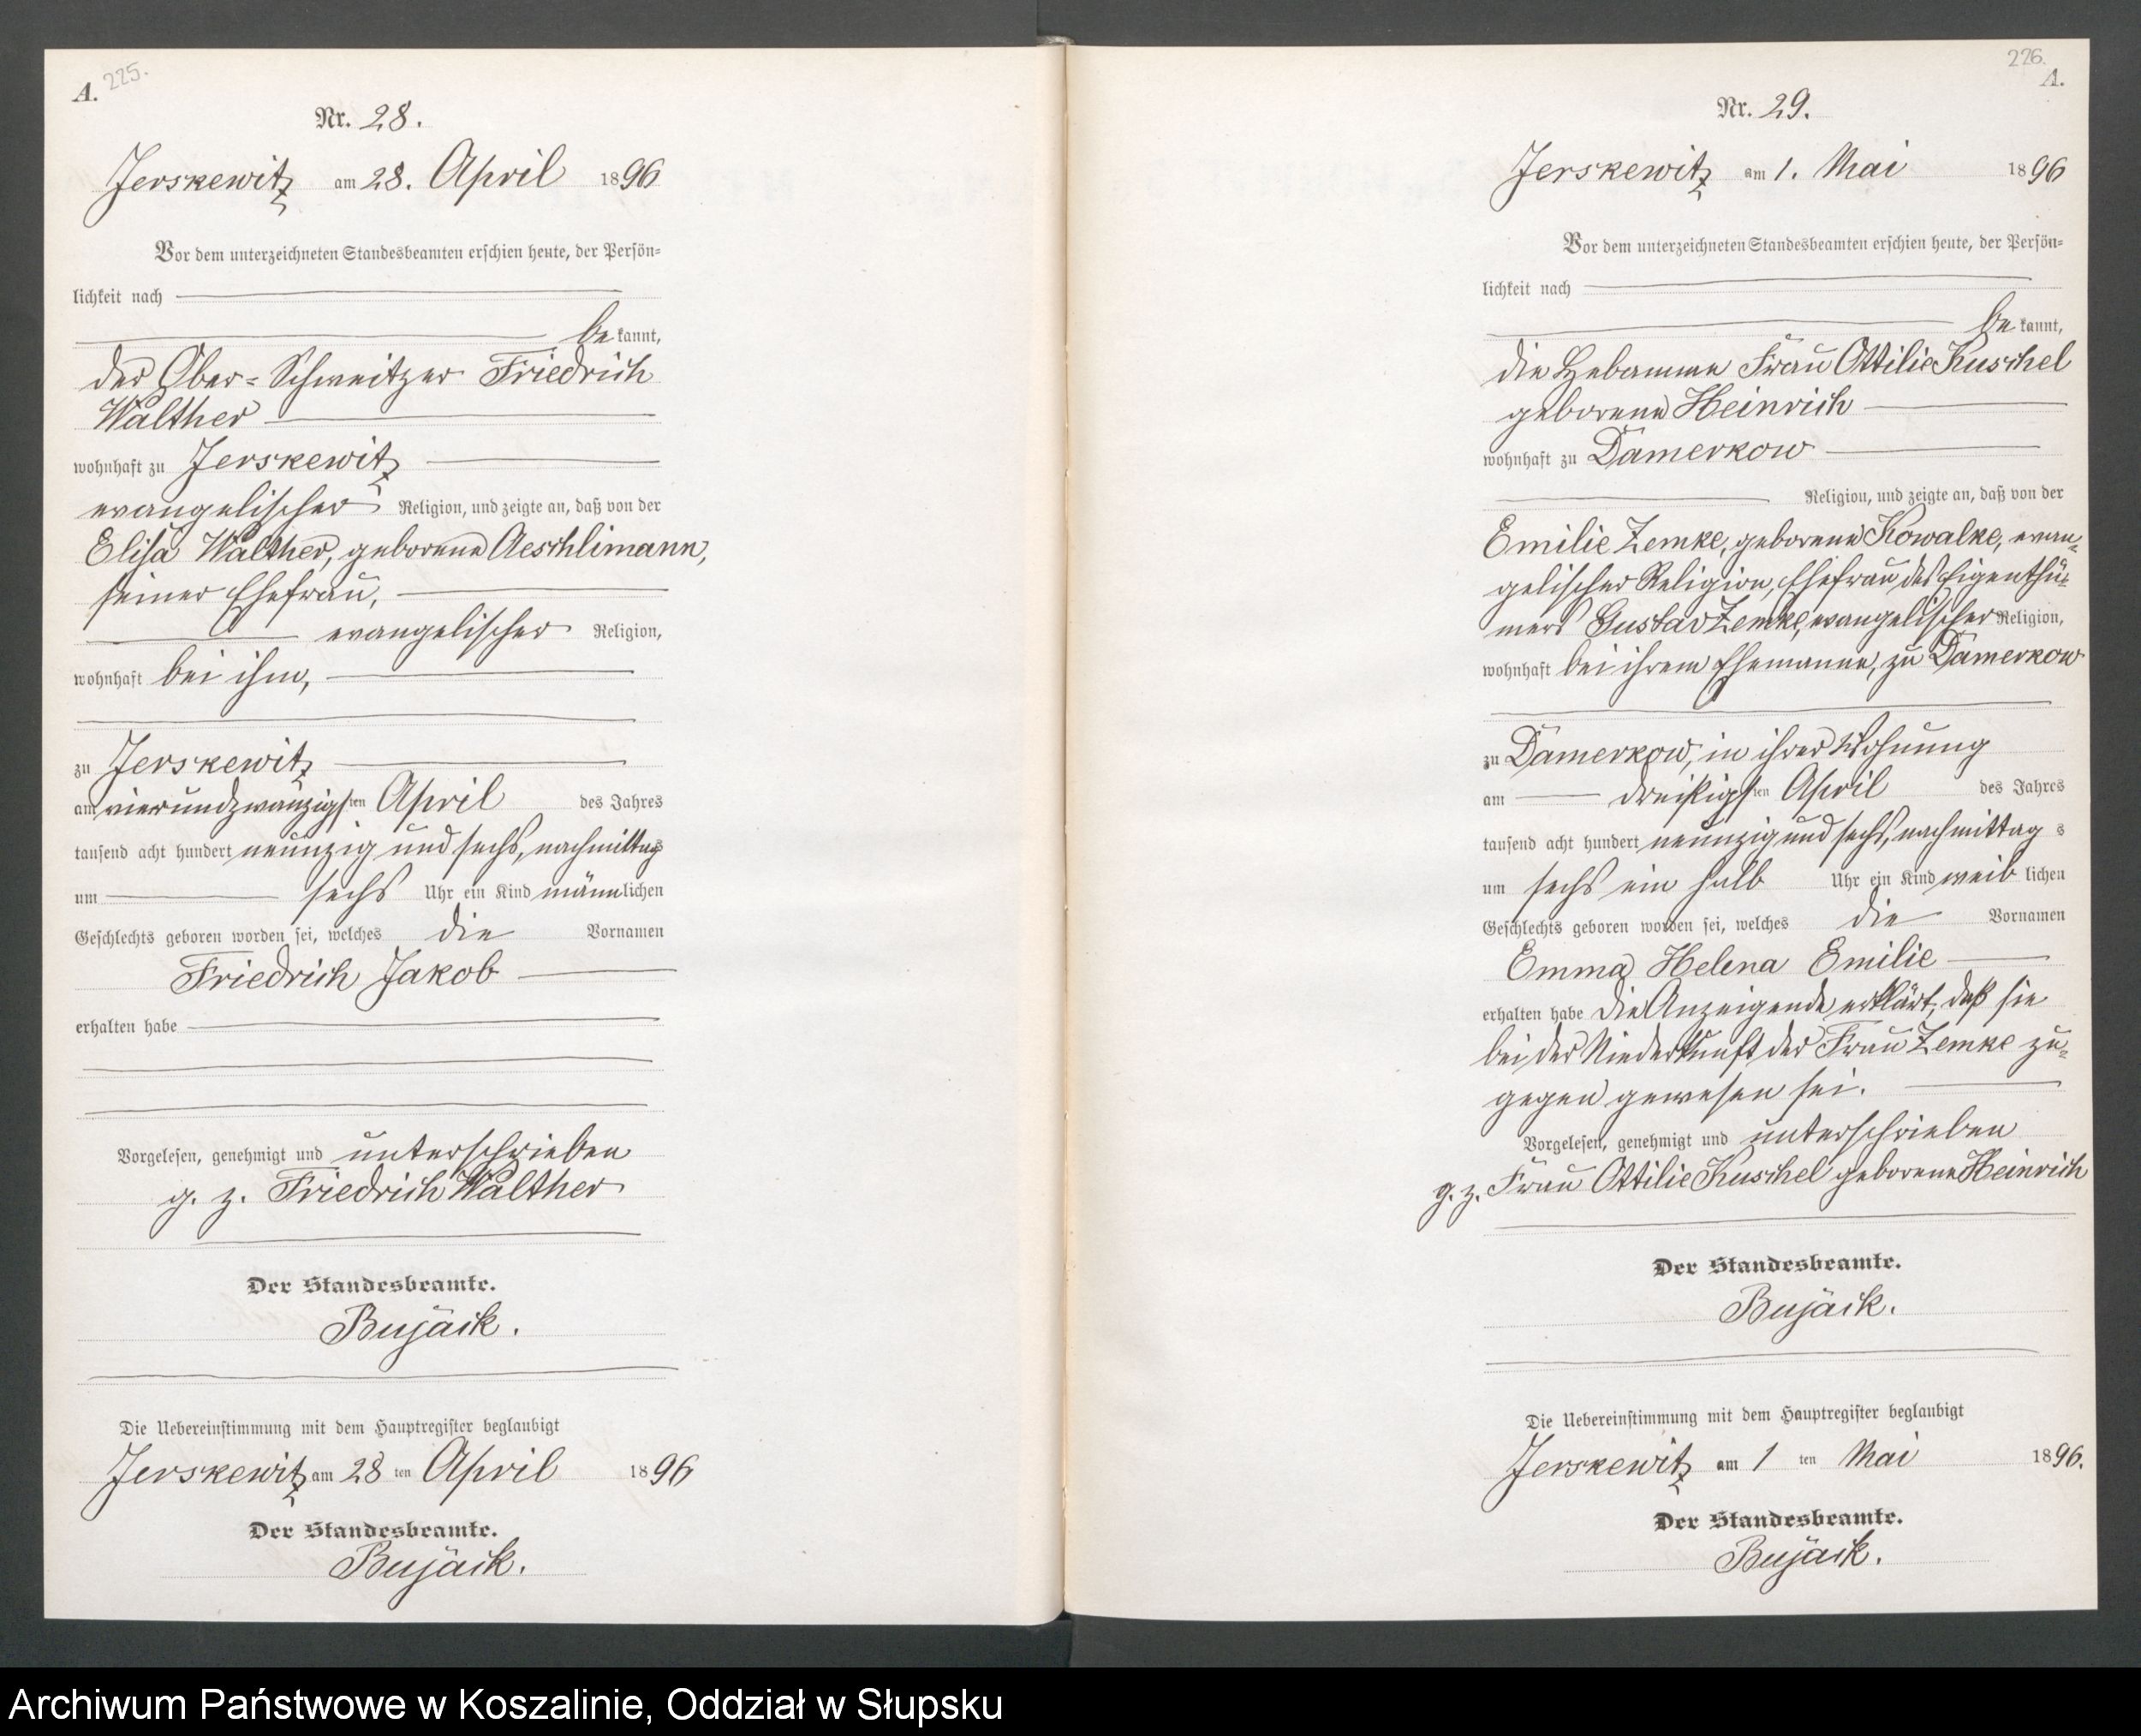 225.
A.
Nr. 28.
Jerskewitz am 28. April 1896
Vor dem unterzeichneten Standesbeamten erschien heute, der Persön-
lichkeit nach
be kannt,
der Ober-Schweitzer Friedrich
Walther
wohnhaft zu Jerskewitz
evangelischer Religion, und zeigte an, daß von der
Elisa Walther, geborene Aeschlimann,
seiner Ehefrau,
evangelischer Religion,
wohnhaft bei ihm,
zu Jerskewitz
am vierundzwanzigsten April des Jahres
tausend acht hundert neunzig und sechs, nachmittags
um sechs Uhr ein Kind männlichen
Geschlechts geboren worden sei, welches die Vornamen
Friedrich Jakob
erhalten habe
Vorgelesen, genehmigt und unterschrieben
g. z. Friedrich Walther
Der Standesbeamte.
Bujack.
Die Uebereinstimmung mit dem Hauptregister beglaubigt
Jerskewitz am 28 ten April 1896
Der Standesbeamte.
Bujack.
226.
A.
Nr. 29.
Jerskewitz am 1. Mai 1896
Vor dem unterzeichneten Standesbeamten erschien heute, der Persön-
lichkeit nach
be kannt,
die Hebamme Frau Ottilie Kuschel
geborene Heinrich
wohnhaft zu Damerkow
Religion, und zeigte an, daß von der
Emilie Zemke, geborene Kowalke, evan-
gelischer Religion, Ehefrau des Eigenthü-
mers Gustav Zemke, evangelischer Religion,
wohnhaft bei ihrem Ehemanne, zu Damerkow
zu Damerkow, in ihrer Wohnung
am dreißigsten April des Jahres
tausend acht hundert neunzig und sechs, nachmittag s
um sechs ein halb Uhr ein Kind weib lichen
Geschlechts geboren worden sei, welches die Vornamen
Emma Helena Emilie
erhalten habe die Anzeigende erklärt, daß sie
bei der Niederkunft der Frau Zemke zu-
gegen gewesen sei.
Vorgelesen, genehmigt und unterschrieben
g. z. Frau Ottilie Kuschel geborene Heinrich
Der Standesbeamte.
Bujack.
Die Uebereinstimmung mit dem Hauptregister beglaubigt
Jerskewitz am 1 ten Mai 1896.
Der Standesbeamte.
Bujack.
Archiwum Państwowe w Koszalinie, Oddział w Słupsku